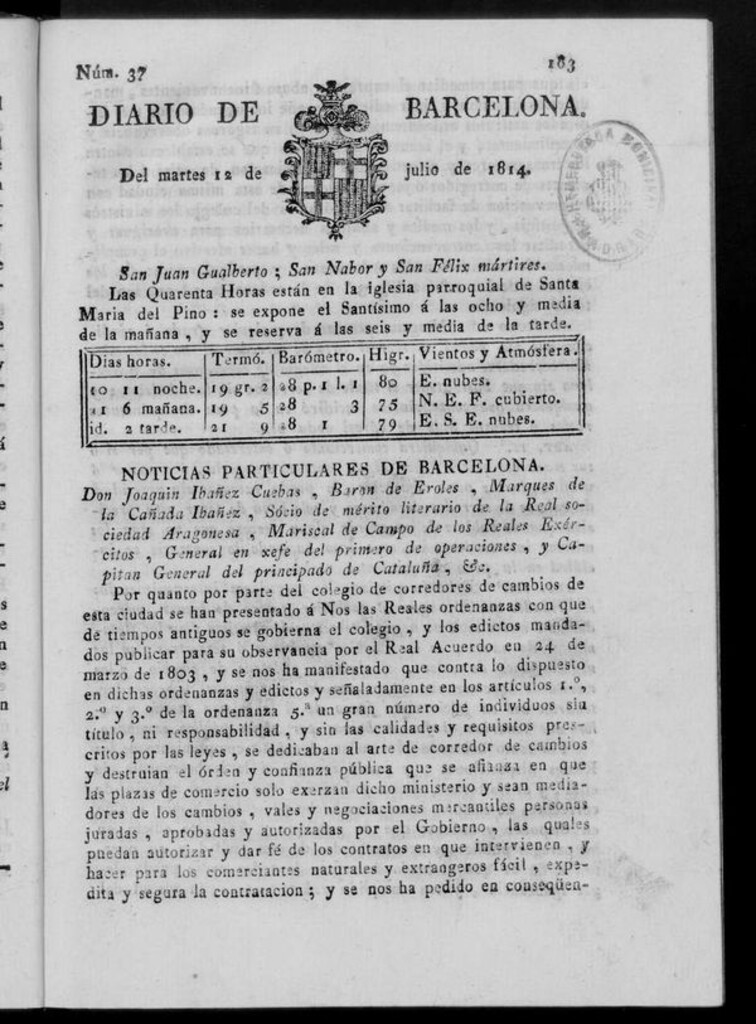 Núm. 37
183
DIARIO DE BARCELONA.
Del martes 12 de julio de 1814.
HEMEROTECA MUNICIPAL
MADRID
San Juan Gualberto ; San Nabor y San Félix mártires.
Las Quarenta Horas están en la iglesia parroquial de Santa
Maria del Pino : se expone el Santísimo á las ocho y media
de la mañana , y se reserva á las seis y media de la tarde.
Dias horas. Termó. Barómetro. Higr. Vientos y Atmósfera.
10 11 noche. 19 gr. 2 28 p. 1 l. 1 80 E. nubes.
11 6 mañana. 19 5 28 3 75 N. E. F. cubierto.
id. 2 tarde. 21 9 28 1 79 E. S. E. nubes.
NOTICIAS PARTICULARES DE BARCELONA.
Don Joaquin Ibañez Cuebas , Baron de Eroles , Marques de
la Cañada Ibañez , Sócio de mérito literario de la Real so-
ciedad Aragonesa , Mariscal de Campo de los Reales Exér-
citos , General en xefe del primero de operaciones , y Ca-
pitan General del principado de Cataluña , &c.
Por quanto por parte del colegio de corredores de cambios de
esta ciudad se han presentado á Nos las Reales ordenanzas con que
de tiempos antiguos se gobierna el colegio , y los edictos manda-
dos publicar para su observancia por el Real Acuerdo en 24 de
marzo de 1803 , y se nos ha manifestado que contra lo dispuesto
en dichas ordenanzas y edictos y señaladamente en los artículos 1.º,
2.º y 3.º de la ordenanza 5.ª un gran número de individuos sin
título , ni responsabilidad , y sin las calidades y requisitos pres-
critos por las leyes , se dedicaban al arte de corredor de cambios
y destruian el órden y confianza pública que se afianza en que
las plazas de comercio solo exerzan dicho ministerio y sean media-
dores de los cambios , vales y negociaciones mercantiles personas
juradas , aprobadas y autorizadas por el Gobierno , las quales
puedan autorizar y dar fé de los contratos en que intervienen , y
hacer para los comerciantes naturales y extrangeros fácil , expe-
dita y segura la contratacion ; y se nos ha pedido en conseqüen-